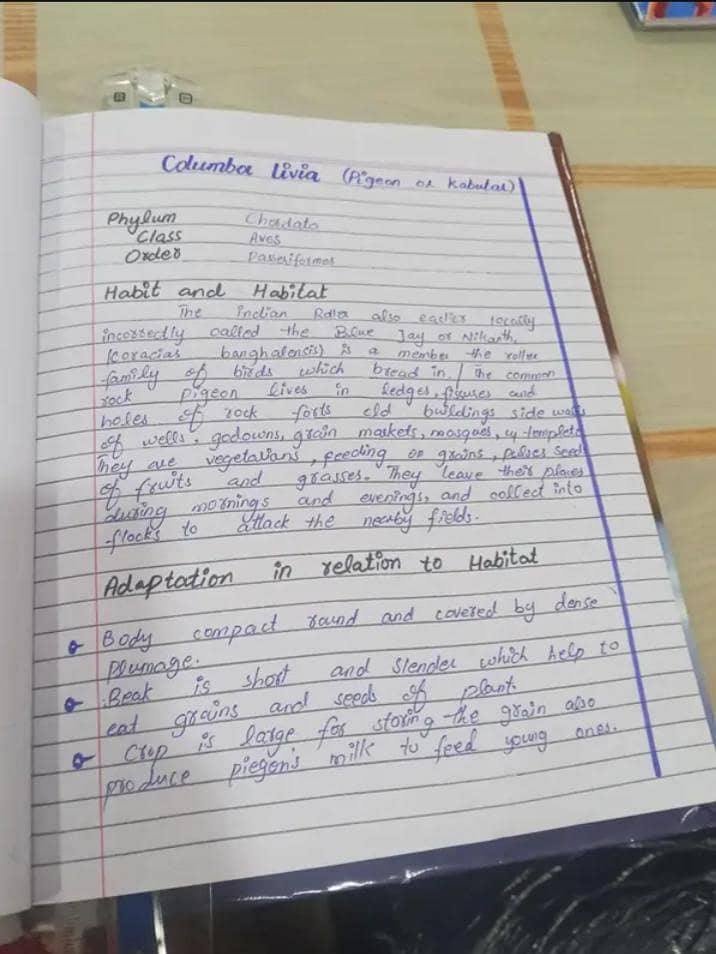 Columba livia (Pigeon or Kabutar)
Phylum Chordata
Class Aves
Order Passeriformes
Habit and Habitat
The Indian also earlier locally
incorrectly called the Blue Jay or Nilkanth,
(coracias banghalensis) is a member the roller
family of birds which bread in. / The common
rock Pigeon lives in ledges, fissures and
holes of rock forts old buildings side walls
of wells, godowns, grain markets, mosques, temples
They are vegetarians, feeding on grains, pulses seed
of fruits and grasses. They leave their places
during mornings and evenings, and collect into
flocks to attack the nearby fields.
Adaptation in relation to Habitat
Body compact round and covered by dense
plumage.
Beak is short and slender which help to
eat grains and seeds of plant.
Crop is large for storing the grain also
produce piegon's milk to feed young ones.